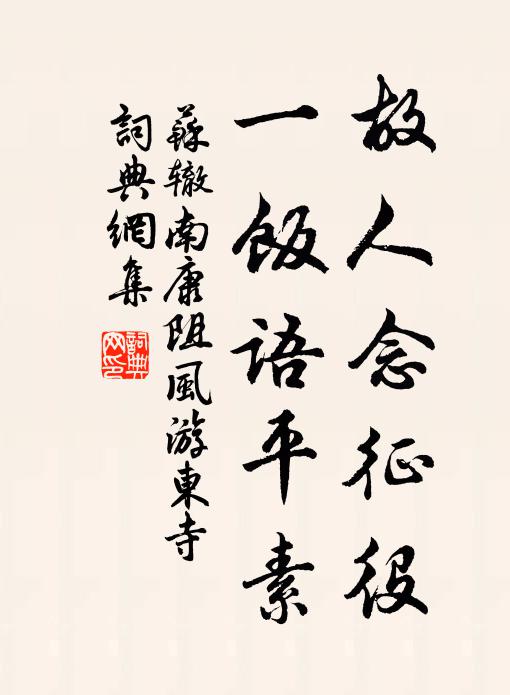 故人念征役
一飯語平素
蘇轍南康阻風游東寺
詞典網集
詞典
网印